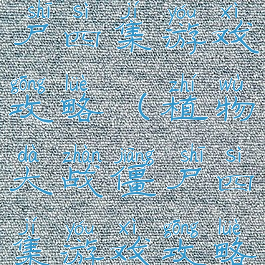 shī sì jí yóu xì
尸四集游戏
gōng lüè zhí wù
攻略(植物
dà zhàn jiāng shī sì
大战僵尸四
jí yóu xì gōng lüè
集游戏攻略